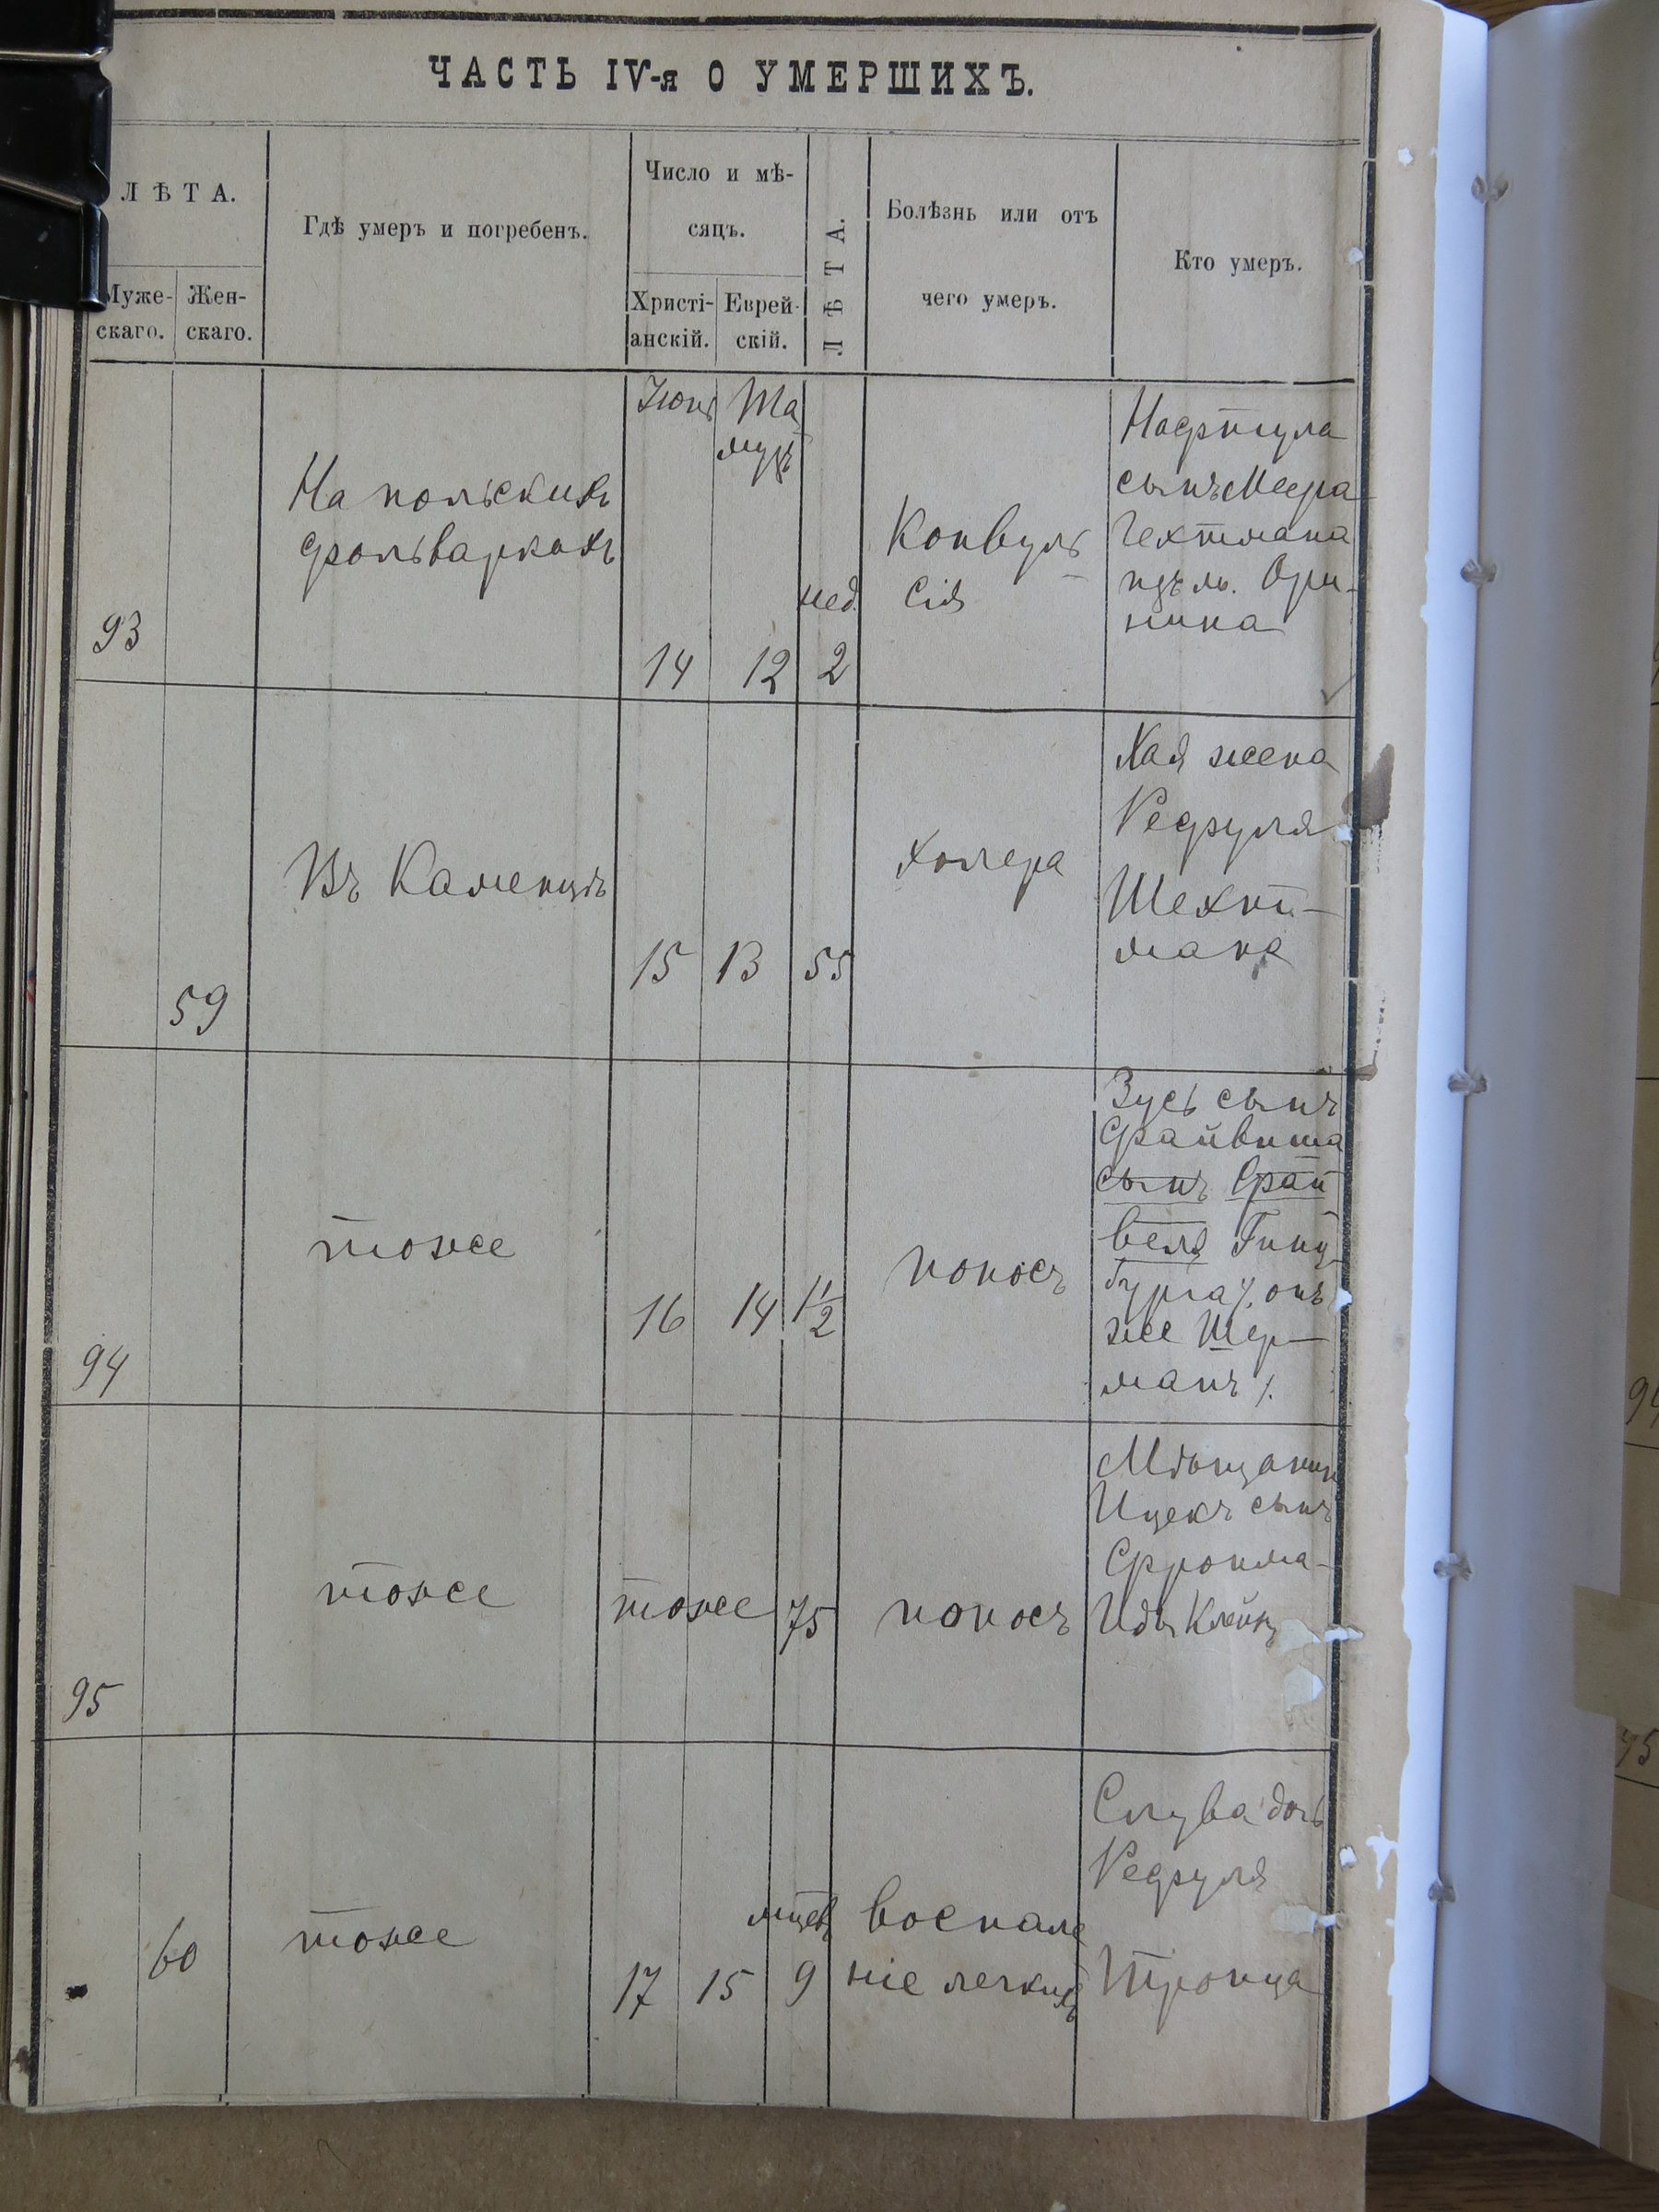 ЧАСТЬ IV-я О УМЕРШИХЪ.
ЛѢТА.
Муже-
скаго.
Жен-
скаго.
Гдѣ умеръ и погребенъ.
Число и мѣ-
сяцъ.
Христі-
анскій.
Еврей-
скій.
ЛѢТА.
Болѣзнь или отъ
чего умеръ.
Кто умеръ.
93
На польскихъ
фольваркахъ
Іюнь
14
Та
музъ
12
нед.
2
Конвуль
сія
Нафтула
сынъ Меера
Гехтмана
изъ м. Ори-
нина
59
Въ Каменцѣ
15
13
55
холера
Хая жена
Рефуля
Шехт-
мана
94
тоже
16
14
1½
поносъ
Зусь сынъ
Файвиша
сынъ Фай
веля Гинц
бурга /. онъ
же Шер-
манъ /.
95
тоже
тоже
75
поносъ
Мѣщанин
Ицекъ сынъ
Фроима-
Иды
60
тоже
17
15
мцевъ
9
воспале
ніе легкихъ
Слува дочь
Рефуля